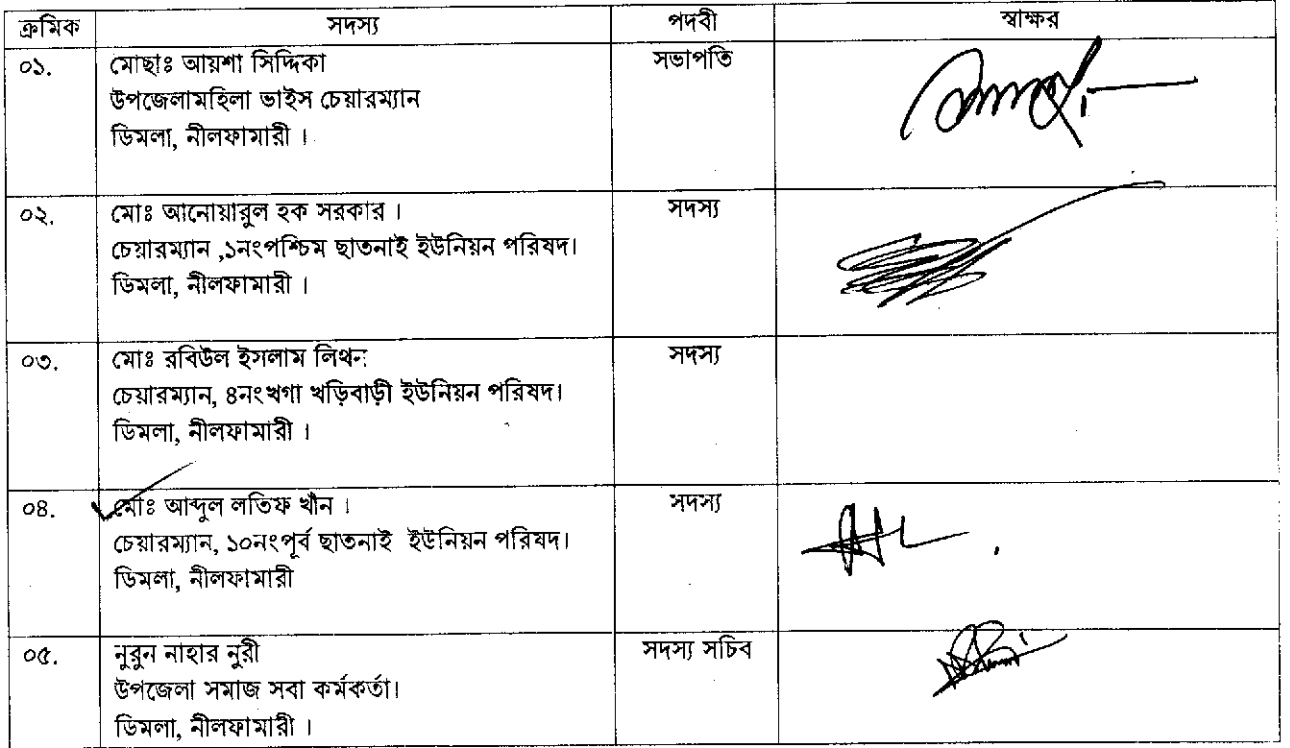 ক্রমিক সদস্য পদবী স্বাক্ষর
০১. মোছাঃ আয়শা সিদ্দিকা সভাপতি
উপজেলামহিলা ভাইস চেয়ারম্যান
ডিমলা, নীলফামারী ।
০২. মোঃ আনোয়ারুল হক সরকার । সদস্য
চেয়ারম্যান ,১নংপশ্চিম ছাতনাই ইউনিয়ন পরিষদ।
ডিমলা, নীলফামারী ।
০৩. মোঃ রবিউল ইসলাম লিথন সদস্য
চেয়ারম্যান, ৪নংখগা খড়িবাড়ী ইউনিয়ন পরিষদ।
ডিমলা, নীলফামারী ।
০৪. মোঃ আব্দুল লতিফ খাঁন । সদস্য
চেয়ারম্যান, ১০নংপূর্ব ছাতনাই ইউনিয়ন পরিষদ।
ডিমলা, নীলফামারী
০৫. নুরুন নাহার নুরী সদস্য সচিব
উপজেলা সমাজ সবা কর্মকর্তা।
ডিমলা, নীলফামারী ।